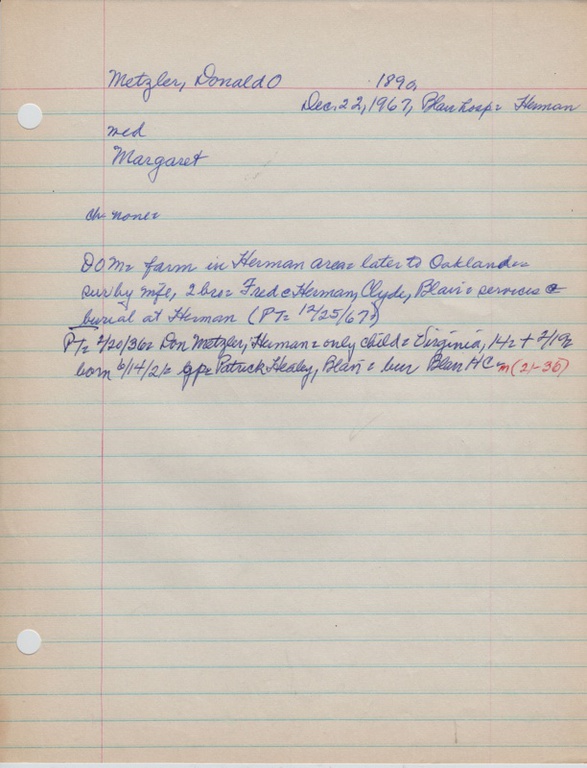 Metzler, Donald O 1890,
Dec. 22, 1967, Blair hosp = Herman
med
Margaret
ch none =
DOM = farm in Herman area = later to Oakland =
sur by wife, 2 bro = Fred c Herman, Clyde, Blair = services &
burial at Herman (PT = 12/25/67)
PT = 2/20/36 = Don Metzler, Herman = only child = Virginia, 14 = + 2/19 =
born 6/14/21 = gp = Patrick Healey, Blair = bur Blair HC = m (21-35)